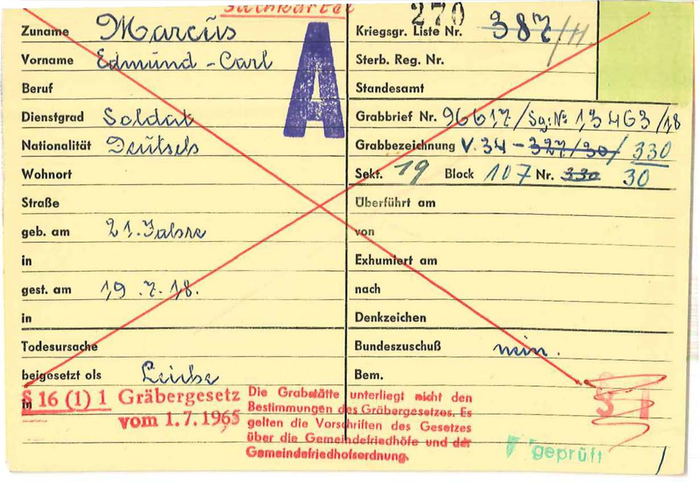 Suchkartei
270
Zuname Marcus
Kriegsgr. Liste Nr. 387/11
Vorname Edmund-Carl
A
Sterb. Reg. Nr.
Beruf
Standesamt
Dienstgrad Soldat
Grabbrief Nr. 96617/Sg: No 13463/18
Nationalität Deutsch
Grabbezeichnung V.34-327/30/330
Wohnort
Sekt. 19 Block 107 Nr. 330 30
Straße
Überführt am
geb. am 21. Jahre
von
in
Exhumiert am
gest. am 19.7.18.
nach
in
Denkzeichen
Todesursache
Bundeszuschuß nein.
beigesetzt als Leiche
Bem.
in
§ 16 (1) 1 Gräbergesetz
vom 1.7.1965
Die Grabstätte unterliegt nicht den
Bestimmungen des Gräbergesetzes. Es
gelten die Vorschriften des Gesetzes
über die Gemeindefriedhöfe und der
Gemeindefriedhofsordnung.
geprüft